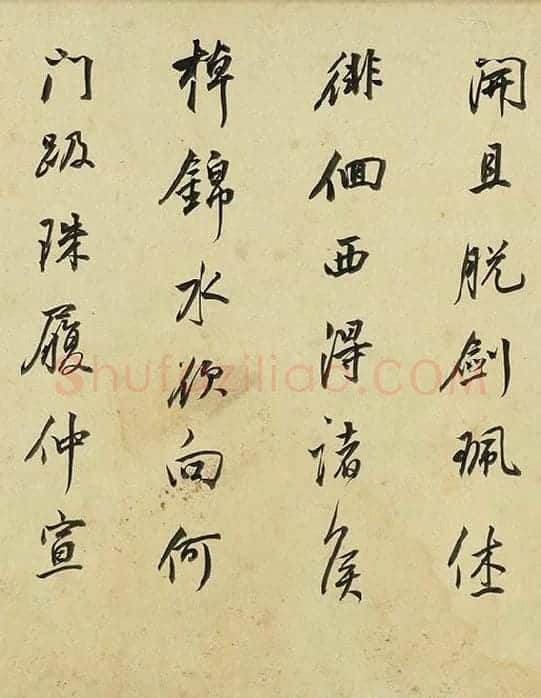 開且脱劍珮休
徘佪西得諸侯
棹錦水欲向何
門趿珠履仲宣
Shufaziliao.COM